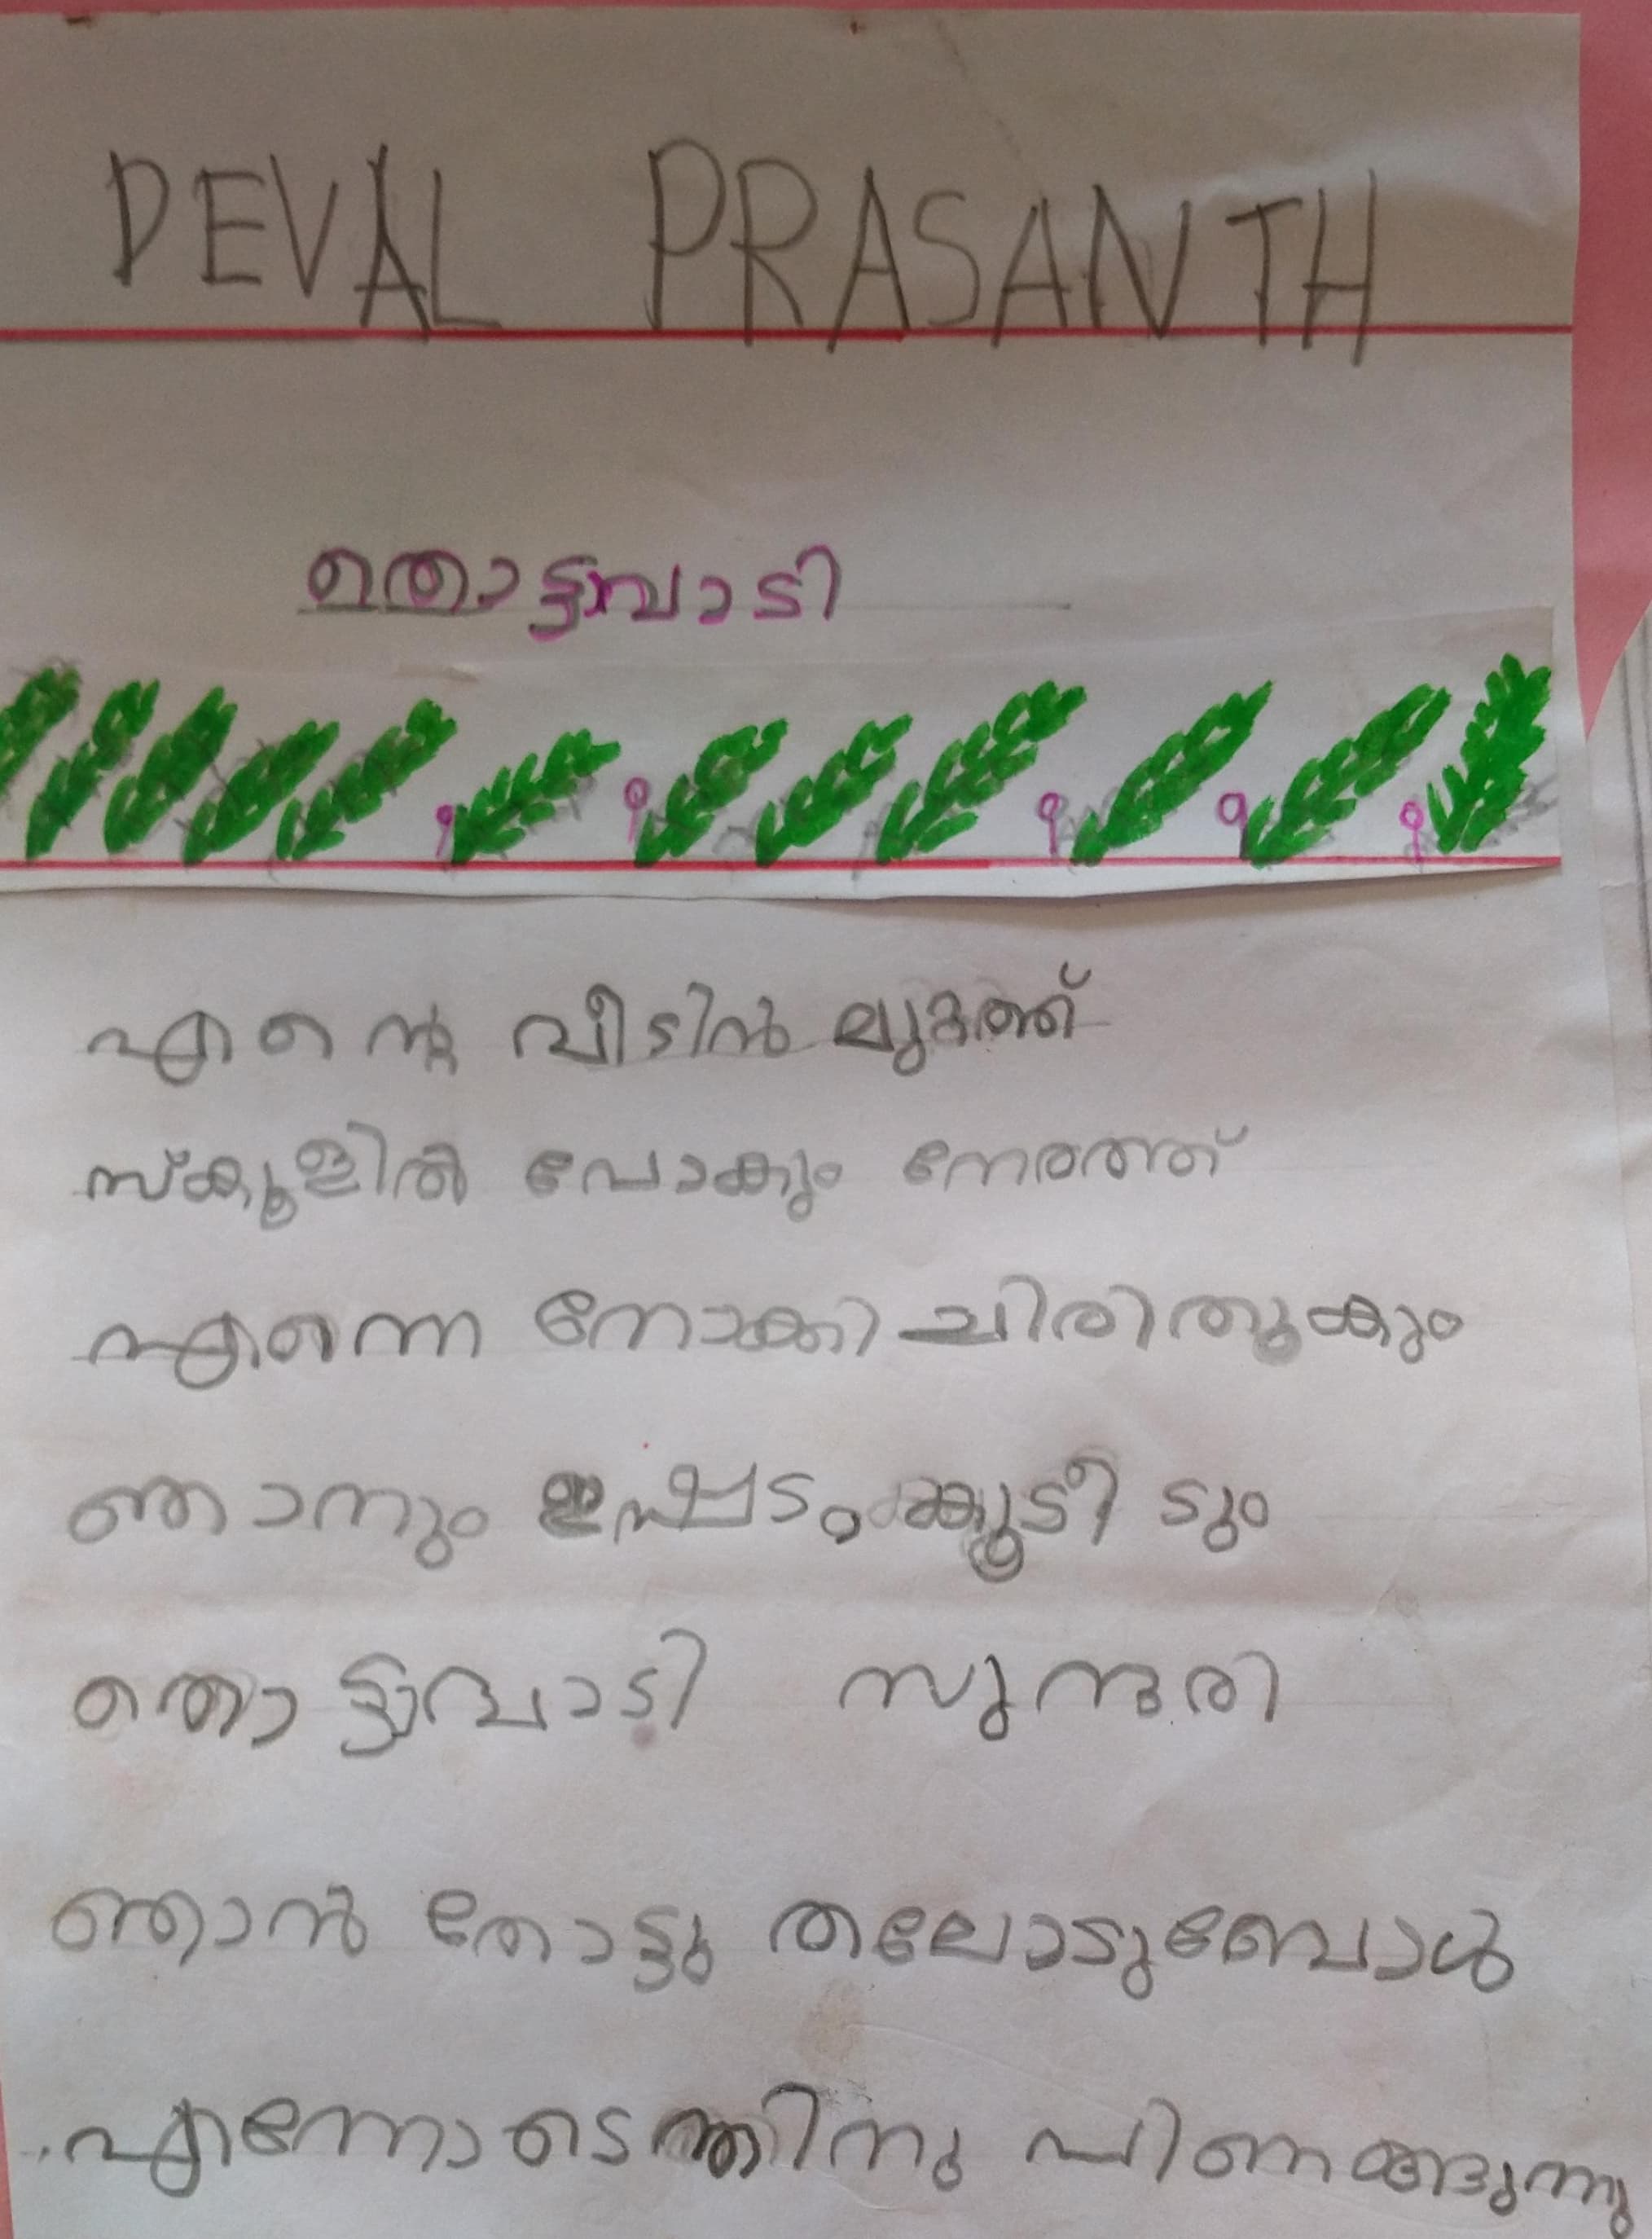 DEVAL PRASANTH
തൊട്ടാവാടി
എന്റെ വീടിൻ മുറ്റത്ത്
സ്കൂളിൽ പോകും നേരത്ത്
എന്നെ നോക്കി ചിരിതൂകും
ഞാനും ഇഷ്ടംക്കൂടീടും
തൊട്ടാവാടി സുന്ദരി
ഞാൻ തോട്ടു തലോടുബോൾ
എന്നോടെത്തിനു പിണങ്ങുന്നു